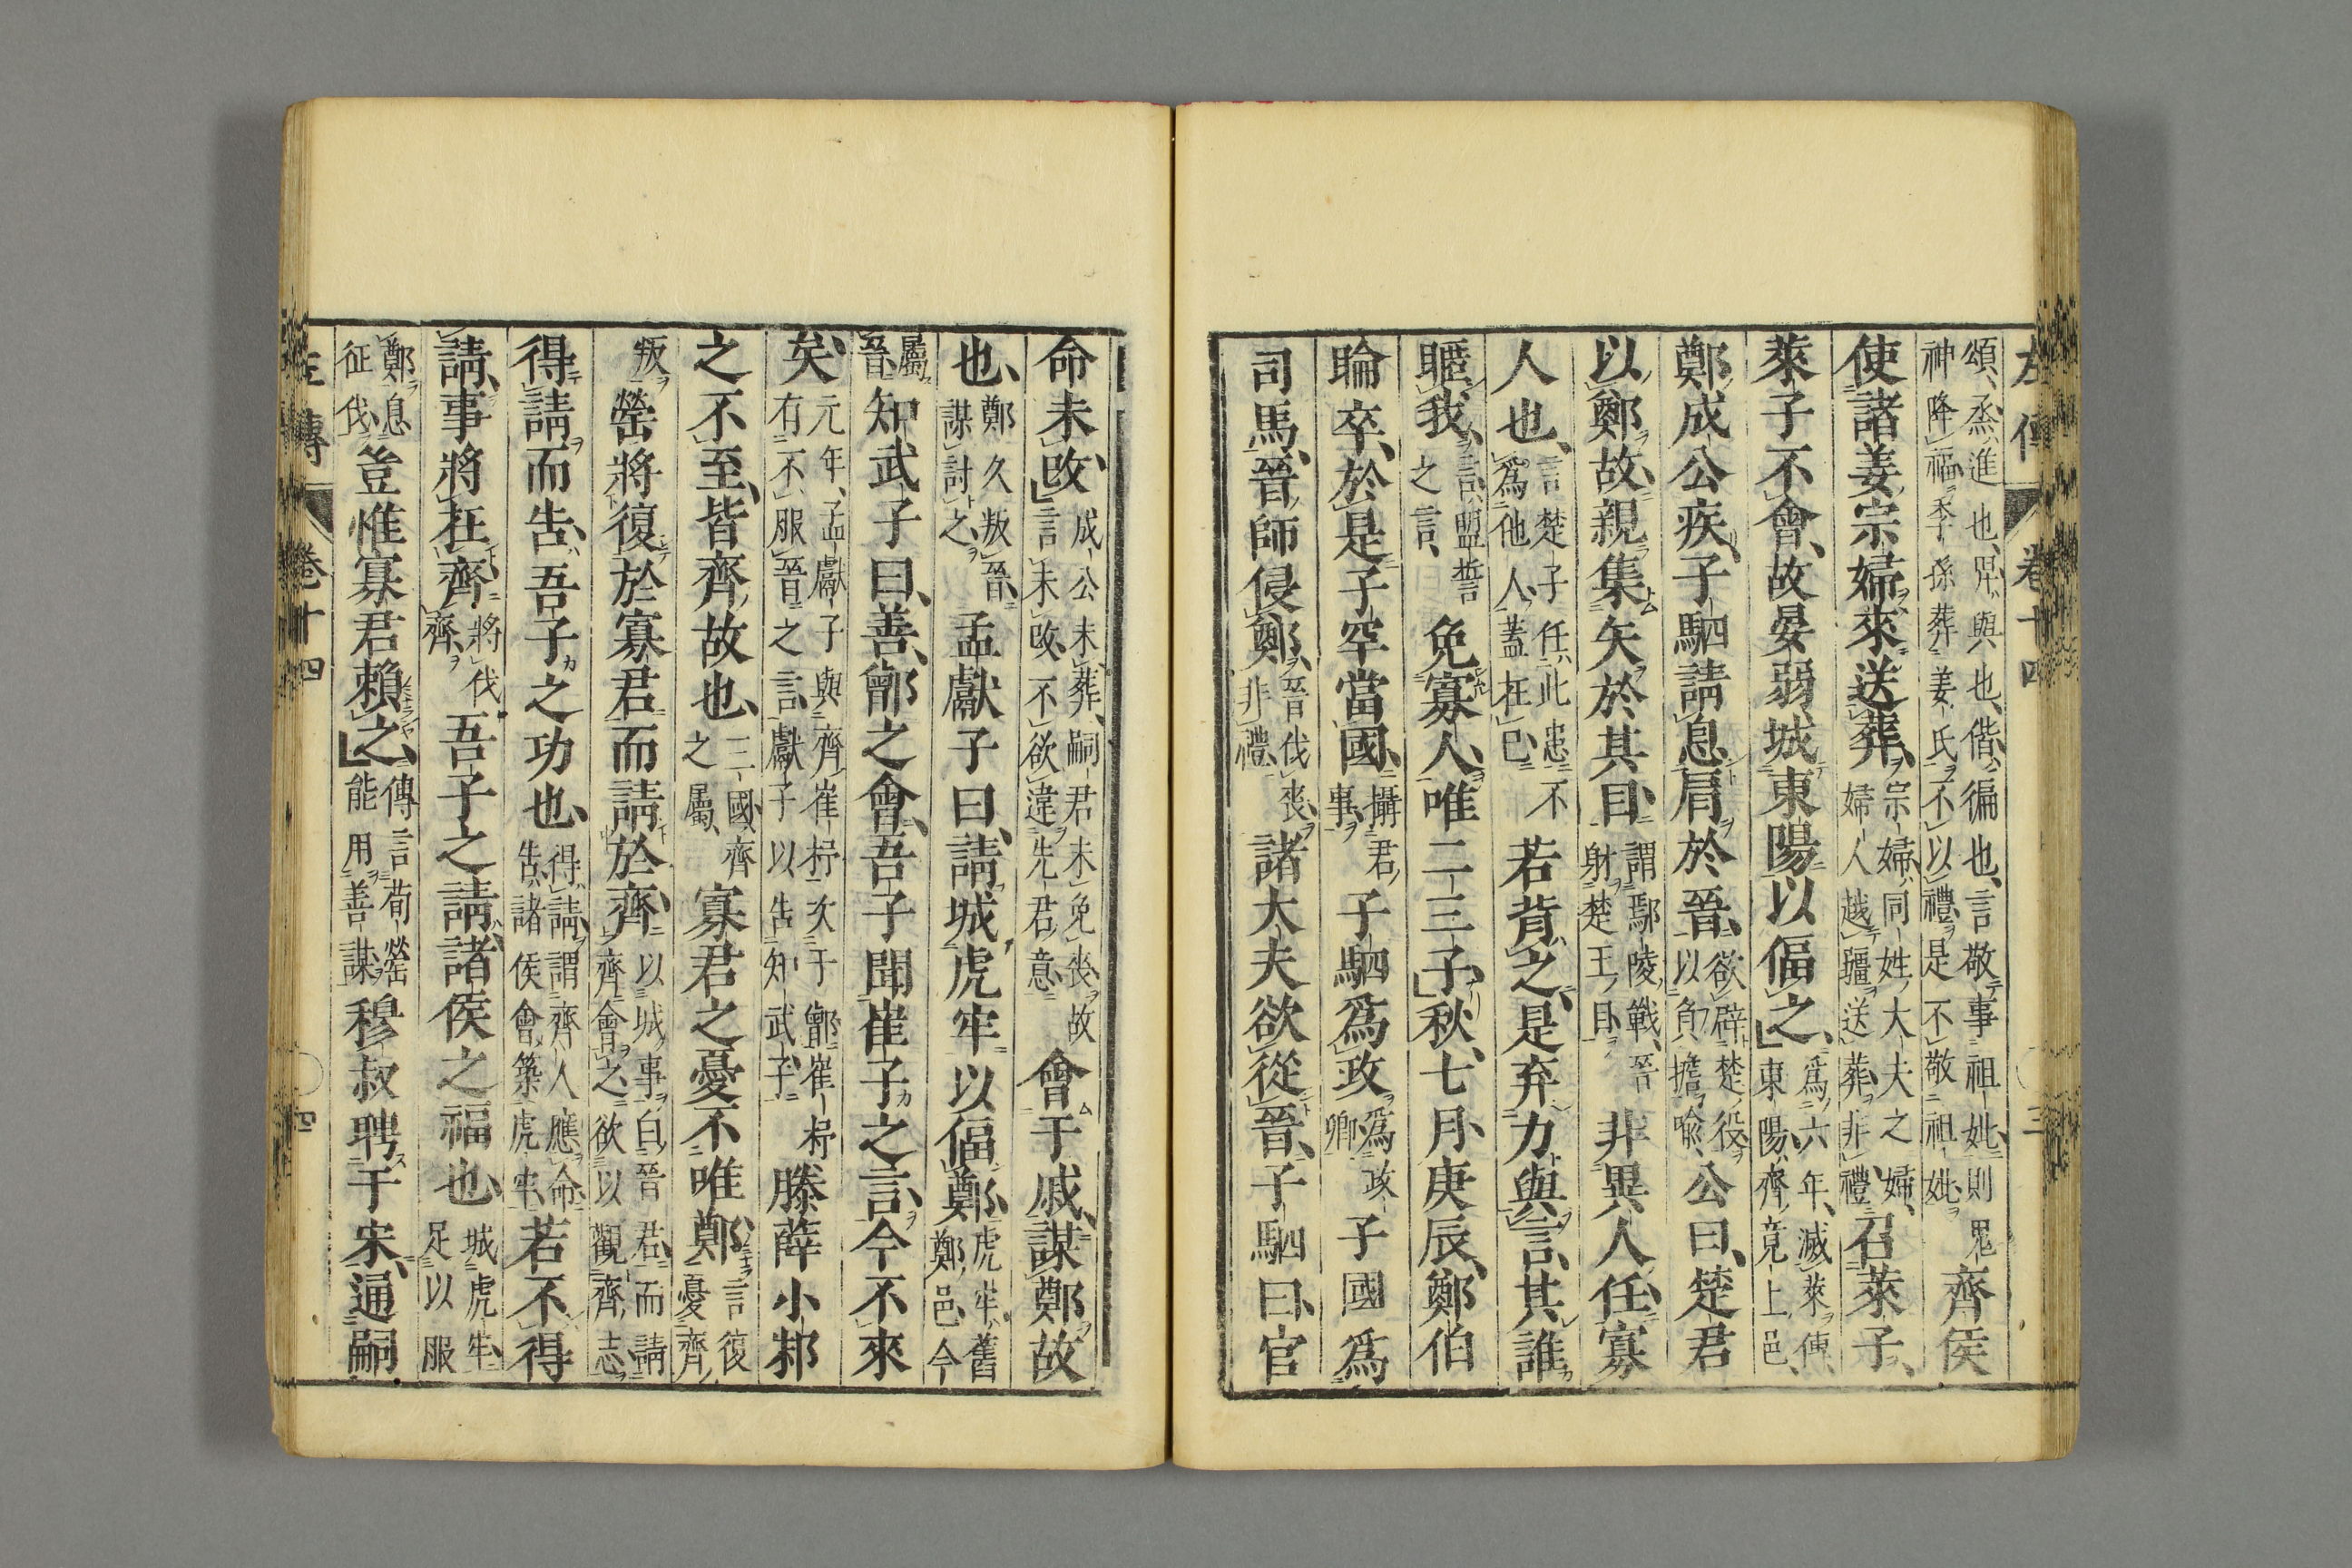 左傳 卷十四 三
頌、烝、進也、畀、與也、偕、徧也、言敬事祖妣、則鬼
神降福、季孫葬姜氏、不以禮、是不敬祖妣、齊侯
使諸姜宗婦來送葬、宗婦、同姓大夫之婦、婦人越疆送葬、非禮、召萊子、
萊子不會、故晏弱城東陽、以偪之、爲六年、滅萊傳、東陽、齊竟上邑、
鄭成公疾、子駟請息肩於晉、欲辟楚役、以負擔喩、公曰、楚君
以鄭故、親集矢於其目、謂鄢陵戰、晉射楚王目、非異人任、寡
人也、言楚子任此患、不爲他人、蓋在己、若背之、是弃力與言、其誰
暱我、言、盟誓之言、免寡人、唯二三子、秋、七月、庚辰、鄭伯
睔卒、於是子罕當國、攝君事、子駟爲政、爲政卿、子國爲
司馬、晉師侵鄭、晉伐喪、非禮、諸大夫欲從晉、子駟曰、官
命未改、成公未葬、嗣君未免喪、故言未改、不欲違先君意、會于戚、謀鄭故
也、鄭久叛晉、謀討之、孟獻子曰、請城虎牢以偪鄭、虎牢、舊鄭邑、今
屬晉、知武子曰、善、鄫之會、吾子聞崔子之言、今不來
矣、元年、孟獻子與齊崔杼次于鄫、崔杼有不服晉之言、獻子以告知武子、滕薛小邾
之不至、皆齊故也、三國、齊之屬、寡君之憂不唯鄭、言復憂齊
叛、罃將復於寡君、而請於齊、以城事白晉君、而請齊會之、欲以觀齊志、
得請而告、吾子之功也、得請、謂齊人應命、告諸侯會築虎牢、若不得
請、事將在齊、將伐齊、吾子之請、諸侯之福也、城虎牢、足以服
鄭、息征伐、豈惟寡君賴之、傳言荀罃能用善謀、穆叔聘于宋、通嗣
左傳 卷十四 四